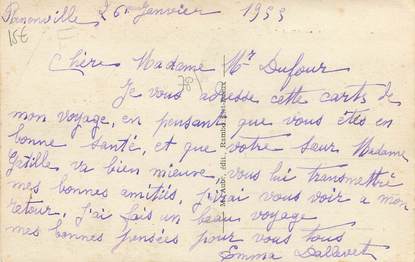 26 Janvier 1955
15€
Chère Madame Mr Dufour
70
Je vous adresse cette carts de
mon voyage, en pensant que vous êtes en
bonne santé, et que votre sœur Madame
Gatille, va bien mieux, vous lui transmettré
mes bonnes amitiés, j'irai vous voir a mon
retour, j'ai fais un beau voyage
mes bonnes pensées pour vous tous
Emma
édit. Rambouillet